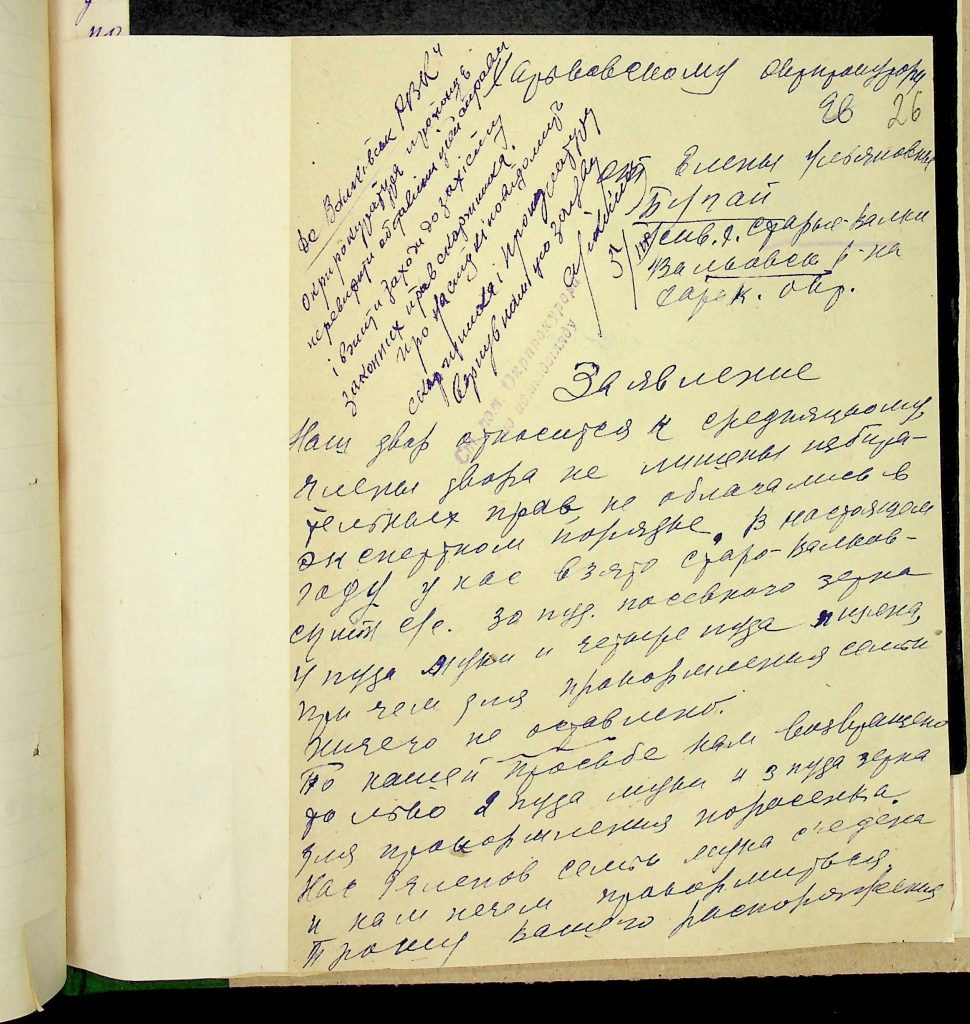 Харьковскому окрпрокурору
26
От Елены Ульяновны
Бупай
жив. с. Старые-Валки
Валковск р-на
Харьк. окр.
До Валківськ РВК
Окрпрокуратура пропонує
перевірити обставини цієї справи
і вжити заходи до захісту
законних прав скаржника.
Про наслідки повідомить
скаржника і прокуратуру
Ст. пом. Окрпрокурора
Заявление
Наш двор относится к средняцкому,
члены двора не лишены избира-
тельных прав не облагались в
экспертном порядке. В настоящем
году у нас взято Старо-Валков-
ским с/с. 30 пуд. посевного зерна
4 пуда муки и четыре пуда пшена,
При чем для прокормления семьи
ничего не оставлено.
По нашей просьбе нам возвращено
только 2 пуда муки и 3 пуда зерна
для прокормления поросенка.
Нас членов семьи мука съедена
и нам нечем прокормиться.
Прошу вашего распоряжения